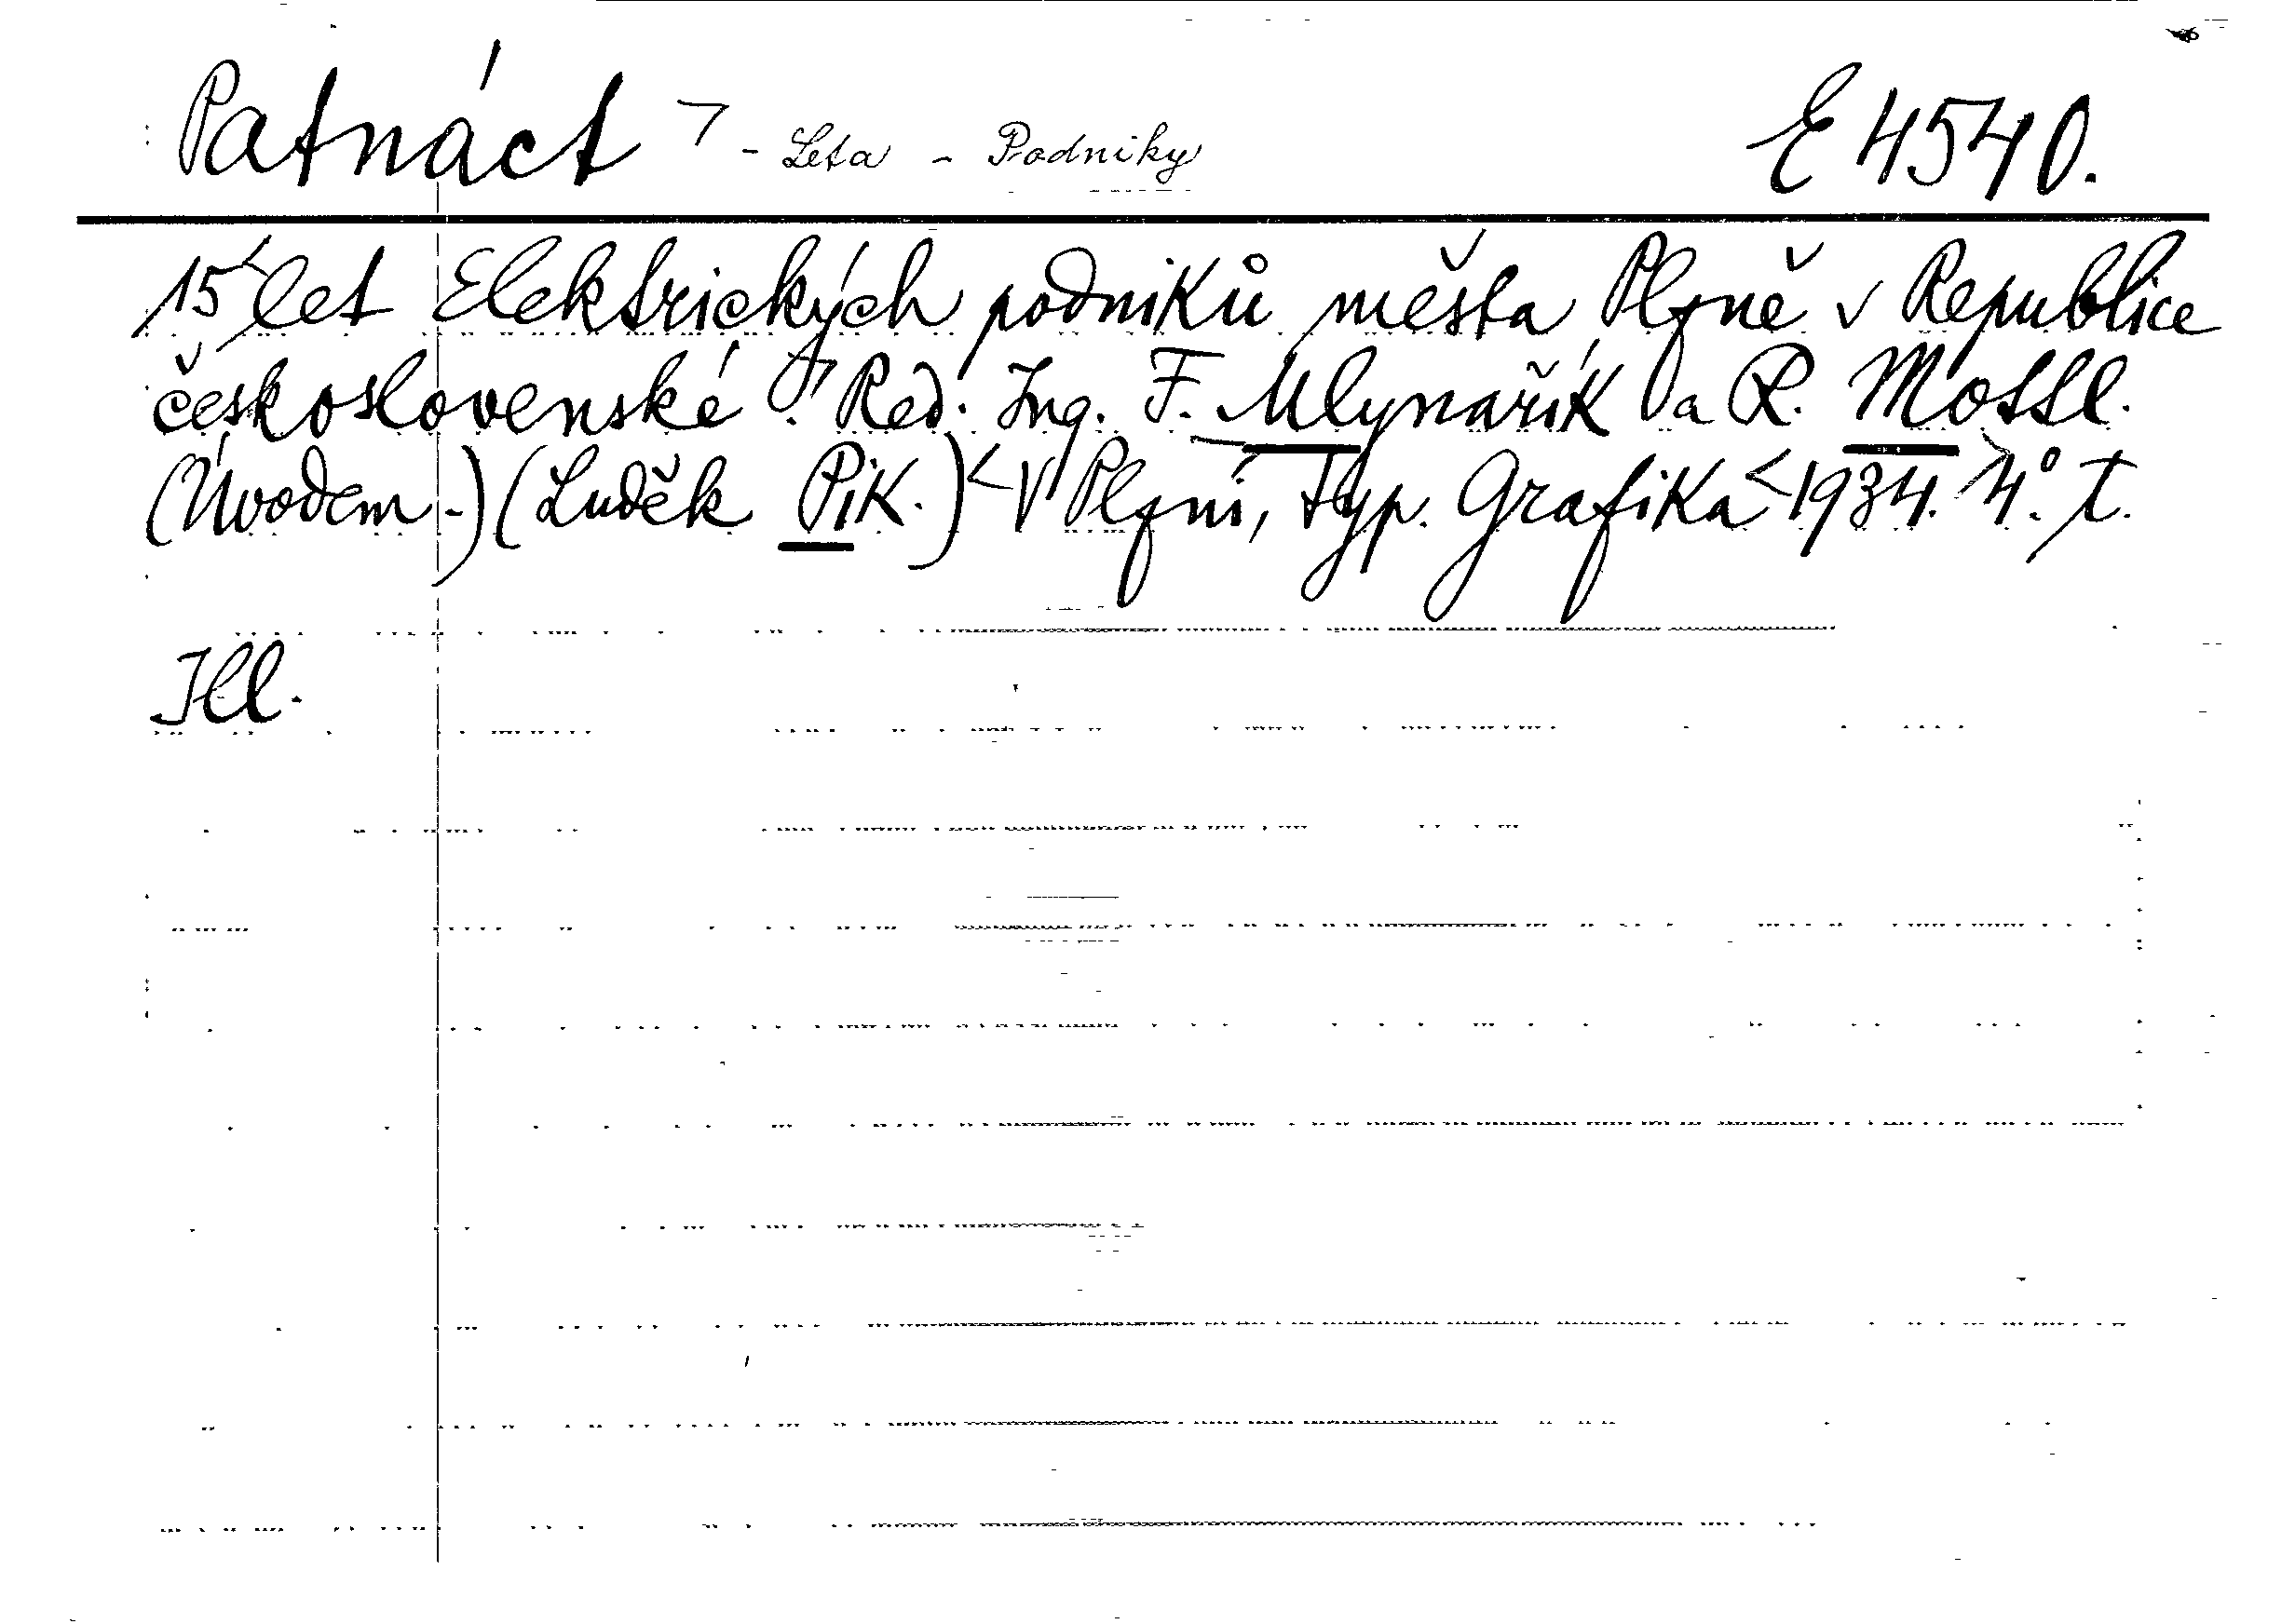 Patnáct - Leta - Podniky E 4540.
15 let Elektrických podniků města Plzně v Republice
československé. Red. Ing. F. Mlynařík a R. Mottl.
(Úvodem -) (Luděk Pik.) V Plzni, typ. Grafika 1934. 4°. t.
Ill.